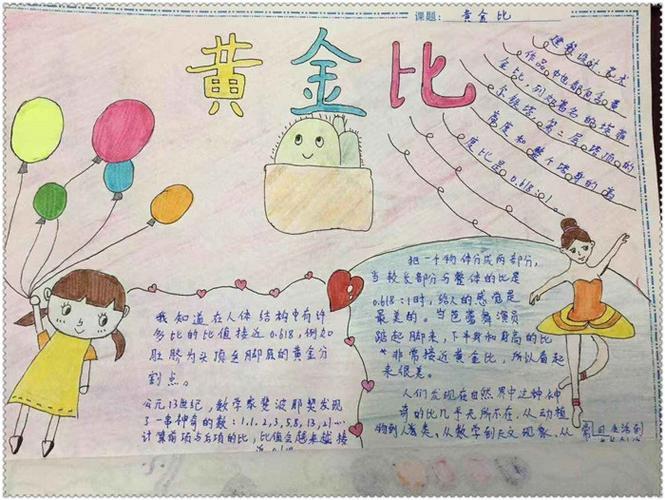 课题：黄金比
黄金比
建筑设计艺术
作品中也都包含黄
金比，例如著名的埃菲
尔铁塔，第二层塔顶的
高度和整个塔身的高
度比是0.618:1
我知道在人体结构中有许
多比的比值接近0.618，例如
肚脐为头顶至脚底的黄金分
割点。
公元13世纪，数学家斐波那契发现
了一串神奇的数：1,1,2,3,5,8,13,21…
计算前项与后项的比，比值会越来越接
近0.618
把一个物体分成两部分，
当较长部分与整体的比是
0.618:1时，给人的感觉是
最美的。当芭蕾舞演员
踮起脚来，下半身和身高的比
非常接近黄金比，所以看起
来很美。
人们发现在自然界中这种神
奇的比几乎无所不在，从动植
物到人类，从数学到天文现象、从